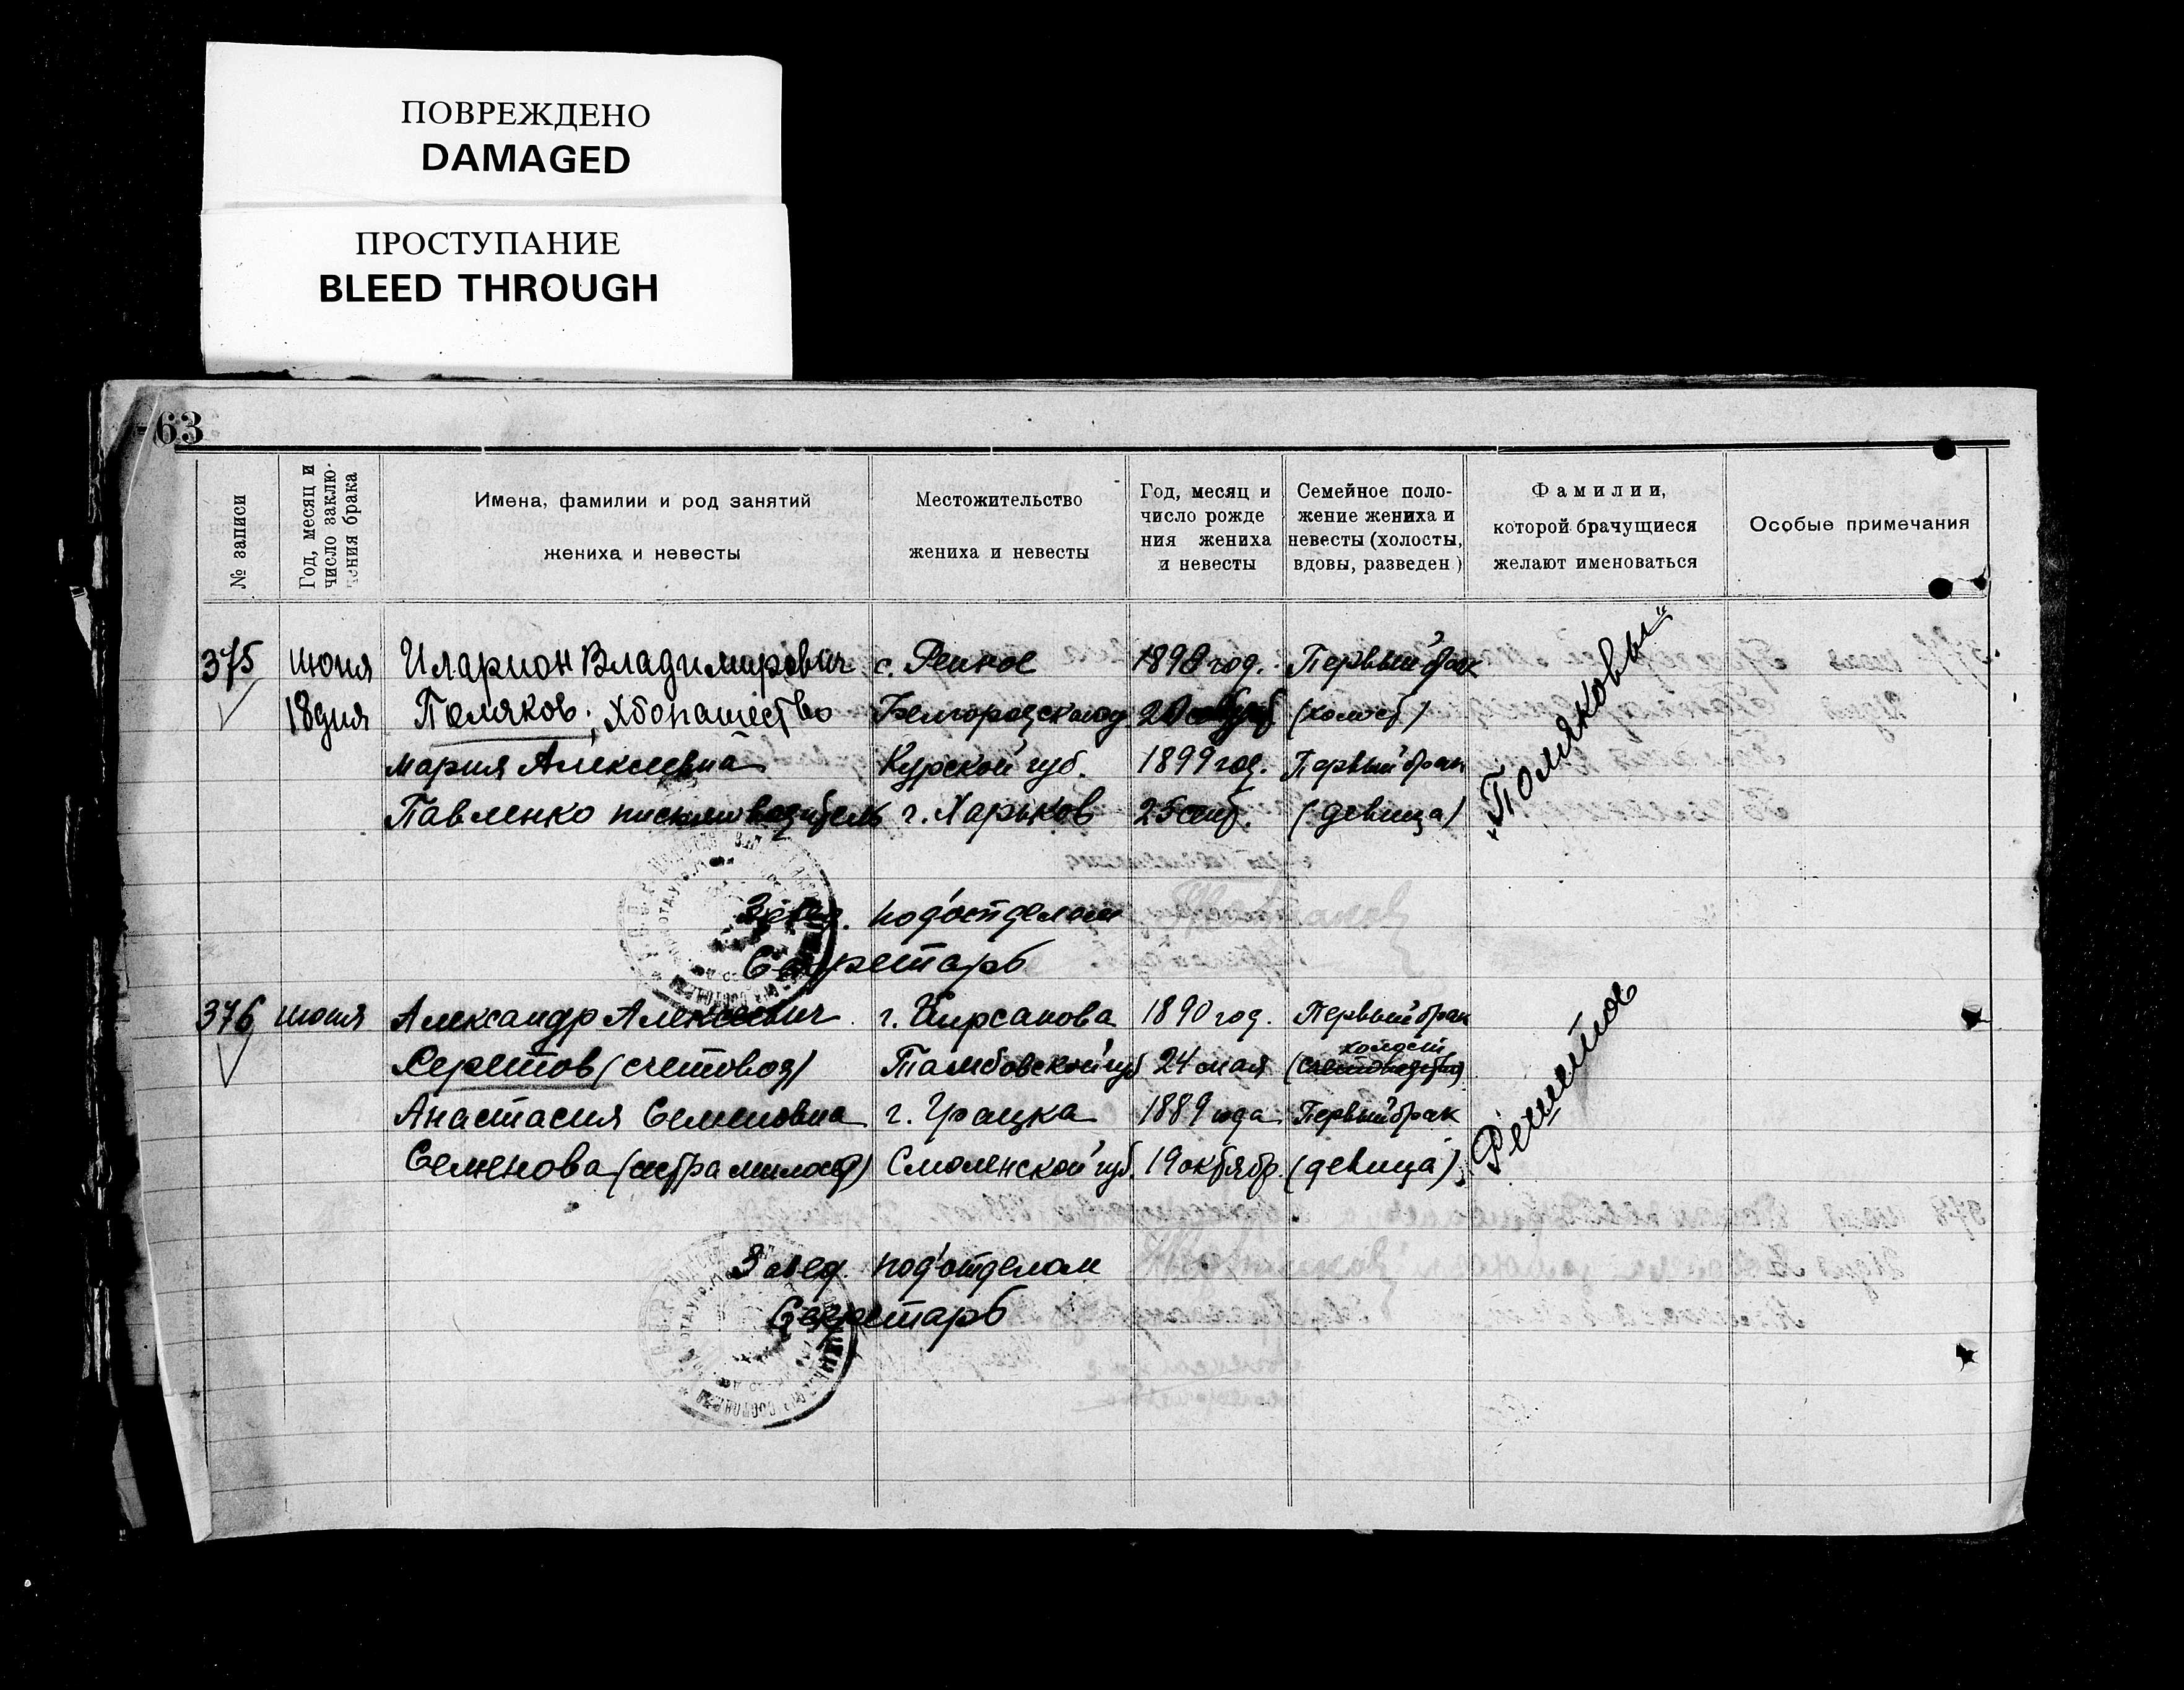 ПОВРЕЖДЕНО
DAMAGED
ПРОСТУПАНИЕ
BLEED THROUGH
63
№ записи
Год, месяц и число заклю-чения брака
Имена, фамилии и род занятий жениха и невесты
Местожительство жениха и невесты
Год, месяц и число рожде ния жениха и невесты
Семейное поло-жение жениха и невесты (холосты, вдовы, разведен)
Фамилии, которой брачущиеся желают именоваться
Особые примечания
375 июня Иларион Владимирович с. 1898 год. Первый брак
18 дня Поляков, Хлопашество Белгородского у 20 (холост)
Мария Алексеевна Курской губ. 1899 год. Первый брак
Павленко письмоводитель г. Харьков 25 сент. (девица)
„Поляковы"
Завед. подотделом
Секретарь
376 июня Александр Алексеевич г. Кирсанова 1890 год. Первый брак
холост
(счетовод) Тамбовской губ 24 мая
Анастасия Семеновна г. 1889 года Первый брак
Семенова (сестра милос) Смоленской губ. 19 октябр. (девица)
Завед. подотделом
Секретарь